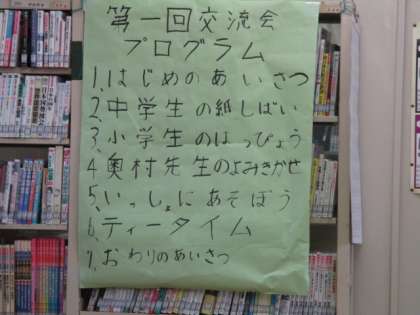 第一回交流会
プログラム
1、はじめのあいさつ
2、中学生の紙しばい
3、小学生のはっぴょう
4、奥村先生のよみきかせ
5、いっしょにあそぼう
6、ティータイム
7、おわりのあいさつ